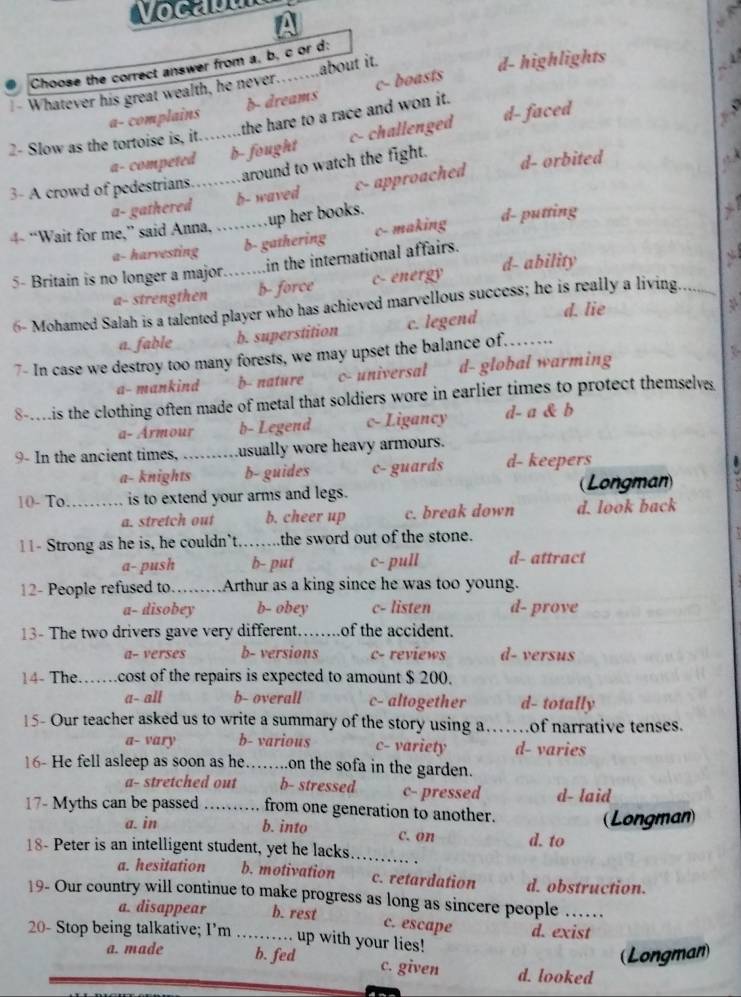 A
Choose the correct answer from a, b, c or d:
1- Whatever his great wealth, he never........about it.
a- complains b- dreams c- boasts d- highlights
2- Slow as the tortoise is, it........the hare to a race and won it.
a- competed b- fought c- challenged d- faced
3- A crowd of pedestrians.........around to watch the fight.
a- gathered b- waved c- approached d- orbited
4- “Wait for me,” said Anna, .........up her books.
a- harvesting b- gathering c- making d- putting
5- Britain is no longer a major........in the international affairs.
a- strengthen b- force c- energy d- ability
6- Mohamed Salah is a talented player who has achieved marvellous success; he is really a living.......
a. fable b. superstition c. legend d. lie
7- In case we destroy too many forests, we may upset the balance of........
a- mankind b- nature c- universal d- global warming
8-....is the clothing often made of metal that soldiers wore in earlier times to protect themselves
a- Armour b- Legend c- Ligancy d- a & b
9- In the ancient times, ..........usually wore heavy armours.
a- knights b- guides c- guards d- keepers
10- To.......... is to extend your arms and legs. (Longman)
a. stretch out b. cheer up c. break down d. look back
11- Strong as he is, he couldn`t........the sword out of the stone.
a- push b- put c- pull d- attract
12- People refused to.........Arthur as a king since he was too young.
a- disobey b- obey c- listen d- prove
13- The two drivers gave very different........of the accident.
a- verses b- versions c- reviews d- versus
14- The.......cost of the repairs is expected to amount $ 200.
a- all b- overall c- altogether d- totally
15- Our teacher asked us to write a summary of the story using a.......of narrative tenses.
a- vary b- various c- variety d- varies
16- He fell asleep as soon as he........on the sofa in the garden.
a- stretched out b- stressed c- pressed d- laid
17- Myths can be passed .......... from one generation to another. (Longman)
a. in b. into c. on d. to
18- Peter is an intelligent student, yet he lacks.......... .
a. hesitation b. motivation c. retardation d. obstruction.
19- Our country will continue to make progress as long as sincere people ......
a. disappear b. rest c. escape d. exist
20- Stop being talkative; I’m .......... up with your lies! (Longman)
a. made b. fed c. given d. looked